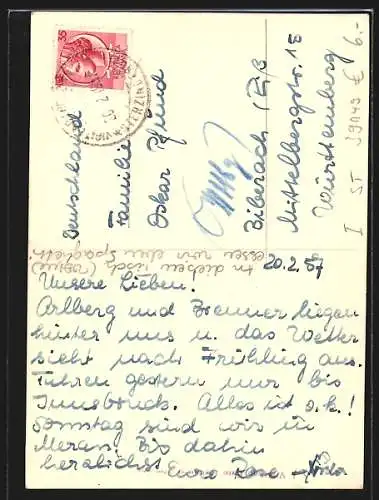 Deutschland
Familie
Oskar Pfund
Biberach / Riß
Mittelbergstr. 18
Württemberg
I ST J9A43 € 6.-
An diesem Tisch (vorne)
essen wir eben Spaghetti.
20.2.57
Unsere Lieben.
Arlberg und Brenner liegen
hinter uns u. das Wetter
sieht nach Frühling aus.
Fuhren gestern nur bis
Innsbruck. Alles ist o.k.!
Sonntag sind wir in
Meran. Bis dahin
herzlichst Eure Rose